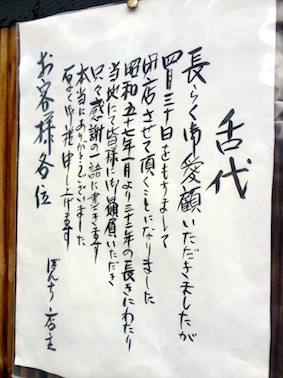 舌代
長らく御愛顧いただきましたが
四月三十日をもちまして
閉店させて頂くことになりました
昭和五十七年一月より三十三年の長きにわたり
当地にて皆様に御贔屓いただき
只々感謝の一語に書きます
本当にありがとうございました
厚く御礼申し上げます
ぼんち店主
お客様各位